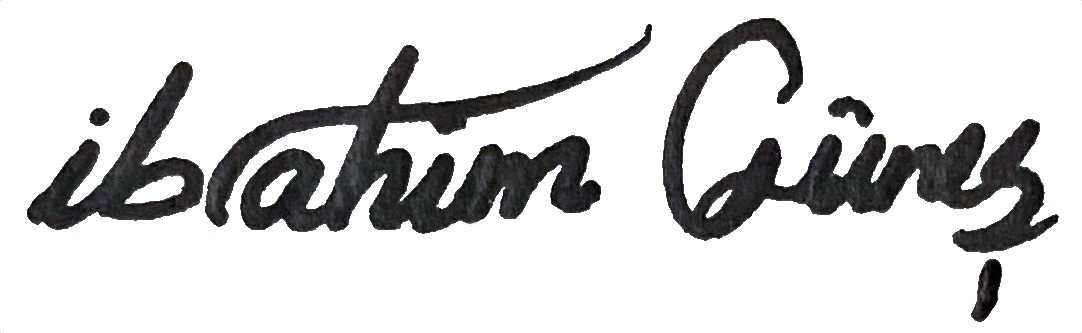 ibrahim Güneş